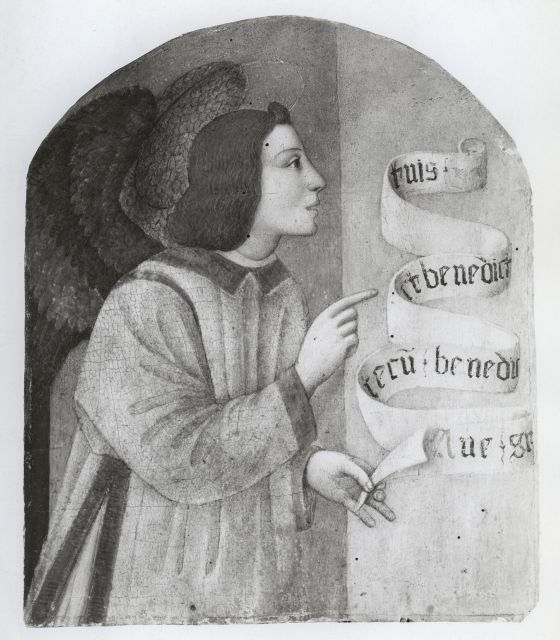 tuis
et benedict
tecū : benedi
Aue : gr